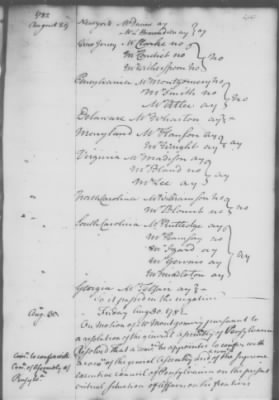 1782
August 29
New york Mr Duane ay
Mr L'Hommedieu ay } ay
New Jersey Mr Clarke no
Mr Condict no } no
Mr Witherspoon no
Pensylvania Mr Montgomery no
Mr Smith no } no
Mr Atlee ay
Delaware Mr Wharton ay
Maryland Mr Hanson ay
Mr Wright ay } ay
Virginia Mr Madison ay
Mr Bland no
Mr Lee ay
North Carolina Mr Williamson no
Mr Blount no
South Carolina Mr Rutledge ay
Mr Ramsay no
Mr Izard ay } ay
Mr Gervais ay
Mr Middleton ay
Georgia Mr Telfair ay
it passed in the negative
Aug. 30.
Friday Aug 30. 1782
On motion of Mr Montgomery pursuant to
a resolution of the general assembly of Pensylvania
Resolved that a comee be appointed to confer with
a comee of the general assembly and of the supreme
executive council of Pensylvania on the present
critical situation of affairs on the frontiers